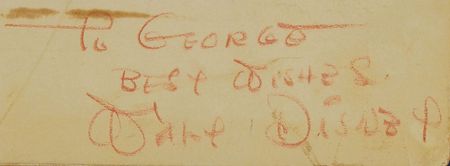 To George
Best Wishes
Walt Disney